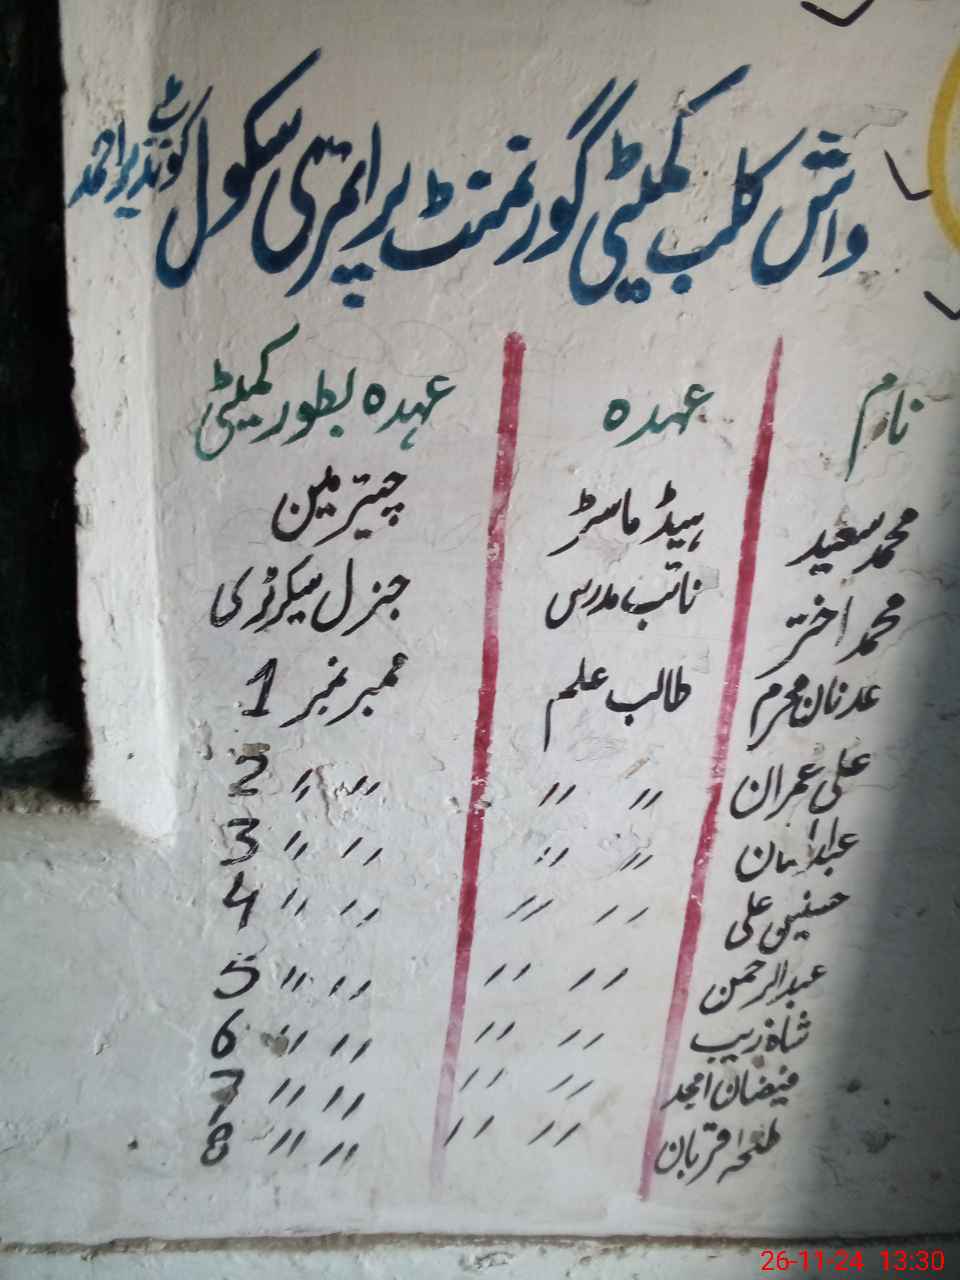 واش کلب کمیٹی گورنمنٹ پرائمری سکول
نام عہدہ عہدہ بطور کمیٹی
محمد سعید ہیڈ ماسٹر چیئرمین
محمد اختر نائب مدرس جنرل سیکرٹری
عدنان محرم طالب علم ممبر نمبر 1
علی عمران 〃 〃 〃 〃 2
〃 〃 〃 〃 3
حسنین علی 〃 〃 〃 〃 4
عبدالرحمن 〃 〃 〃 〃 5
شاہ زیب 〃 〃 〃 〃 6
فیضان امجد 〃 〃 〃 〃 7
طلحہ قربان 〃 〃 〃 〃 8
26-11-24 13:30